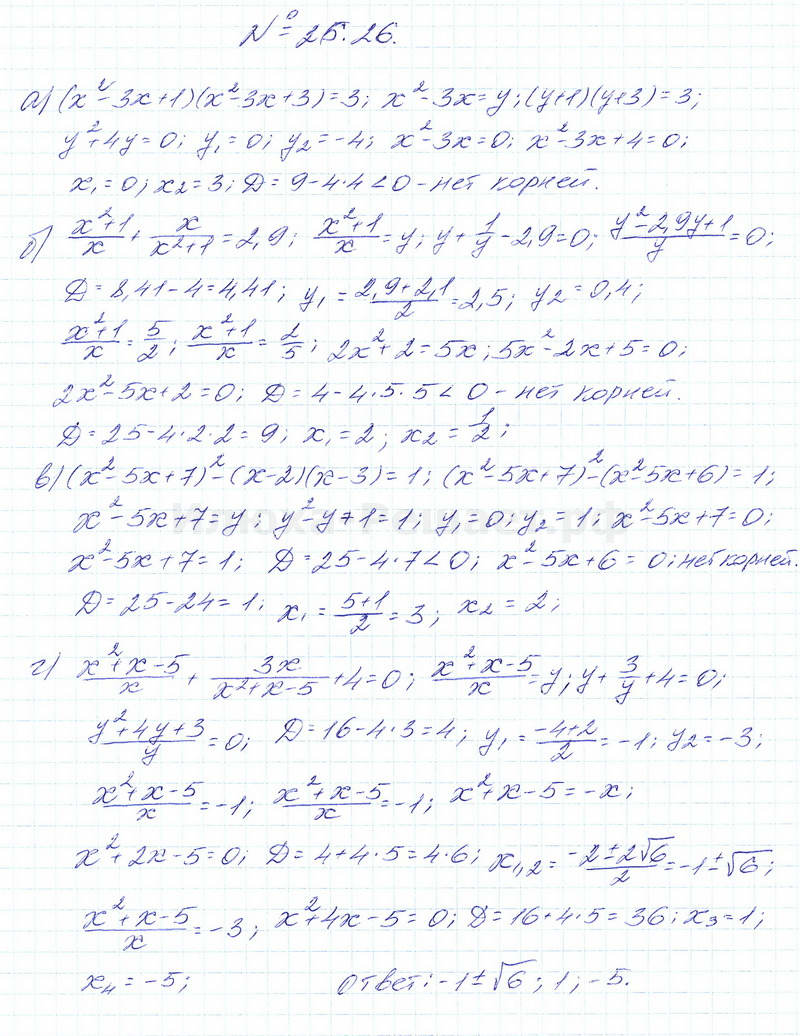 № 25.26.
а) (x²-3x+1)(x²-3x+3)=3; x²-3x=y; (y+1)(y+3)=3;
y²+4y=0; y₁=0; y₂=-4; x²-3x=0; x²-3x+4=0;
x₁=0; x₂=3; D=9-4·4<0 - нет корней.
б) (x²+1)/x + x/(x²+1) = 2,9; (x²+1)/x = y; y + 1/y - 2,9=0; (y²-2,9y+1)/y = 0;
D=8,41-4=4,41; y₁ = (2,9+2,1)/2 = 2,5; y₂=0,4;
(x²+1)/x = 5/2; (x²+1)/x = 2/5; 2x²+2=5x; 5x²-2x+5=0;
2x²-5x+2=0; D=4-4·5·5<0 - нет корней.
D=25-4·2·2=9; x₁=2; x₂=1/2;
в) (x²-5x+7)²-(x-2)(x-3)=1; (x²-5x+7)²-(x²-5x+6)=1;
x²-5x+7=y; y²-y+1=1; y₁=0; y₂=1; x²-5x+7=0;
Илюха-Решает.рф
x²-5x+7=1; D=25-4·7<0; x²-5x+6=0; нет корней.
D=25-24=1; x₁ = (5+1)/2 = 3; x₂=2;
г) (x²+x-5)/x + 3x/(x²+x-5) + 4=0; (x²+x-5)/x = y; y + 3/y + 4=0;
(y²+4y+3)/y = 0; D=16-4·3=4; y₁ = (-4+2)/2 = -1; y₂=-3;
(x²+x-5)/x = -1; (x²+x-5)/x = -1; x²+x-5=-x;
x²+2x-5=0; D=4+4·5=4·6; x₁,₂ = (-2±2√6)/2 = -1±√6;
(x²+x-5)/x = -3; x²+4x-5=0; D=16+4·5=36; x₃=1;
x₄=-5; Ответ: -1±√6; 1; -5.